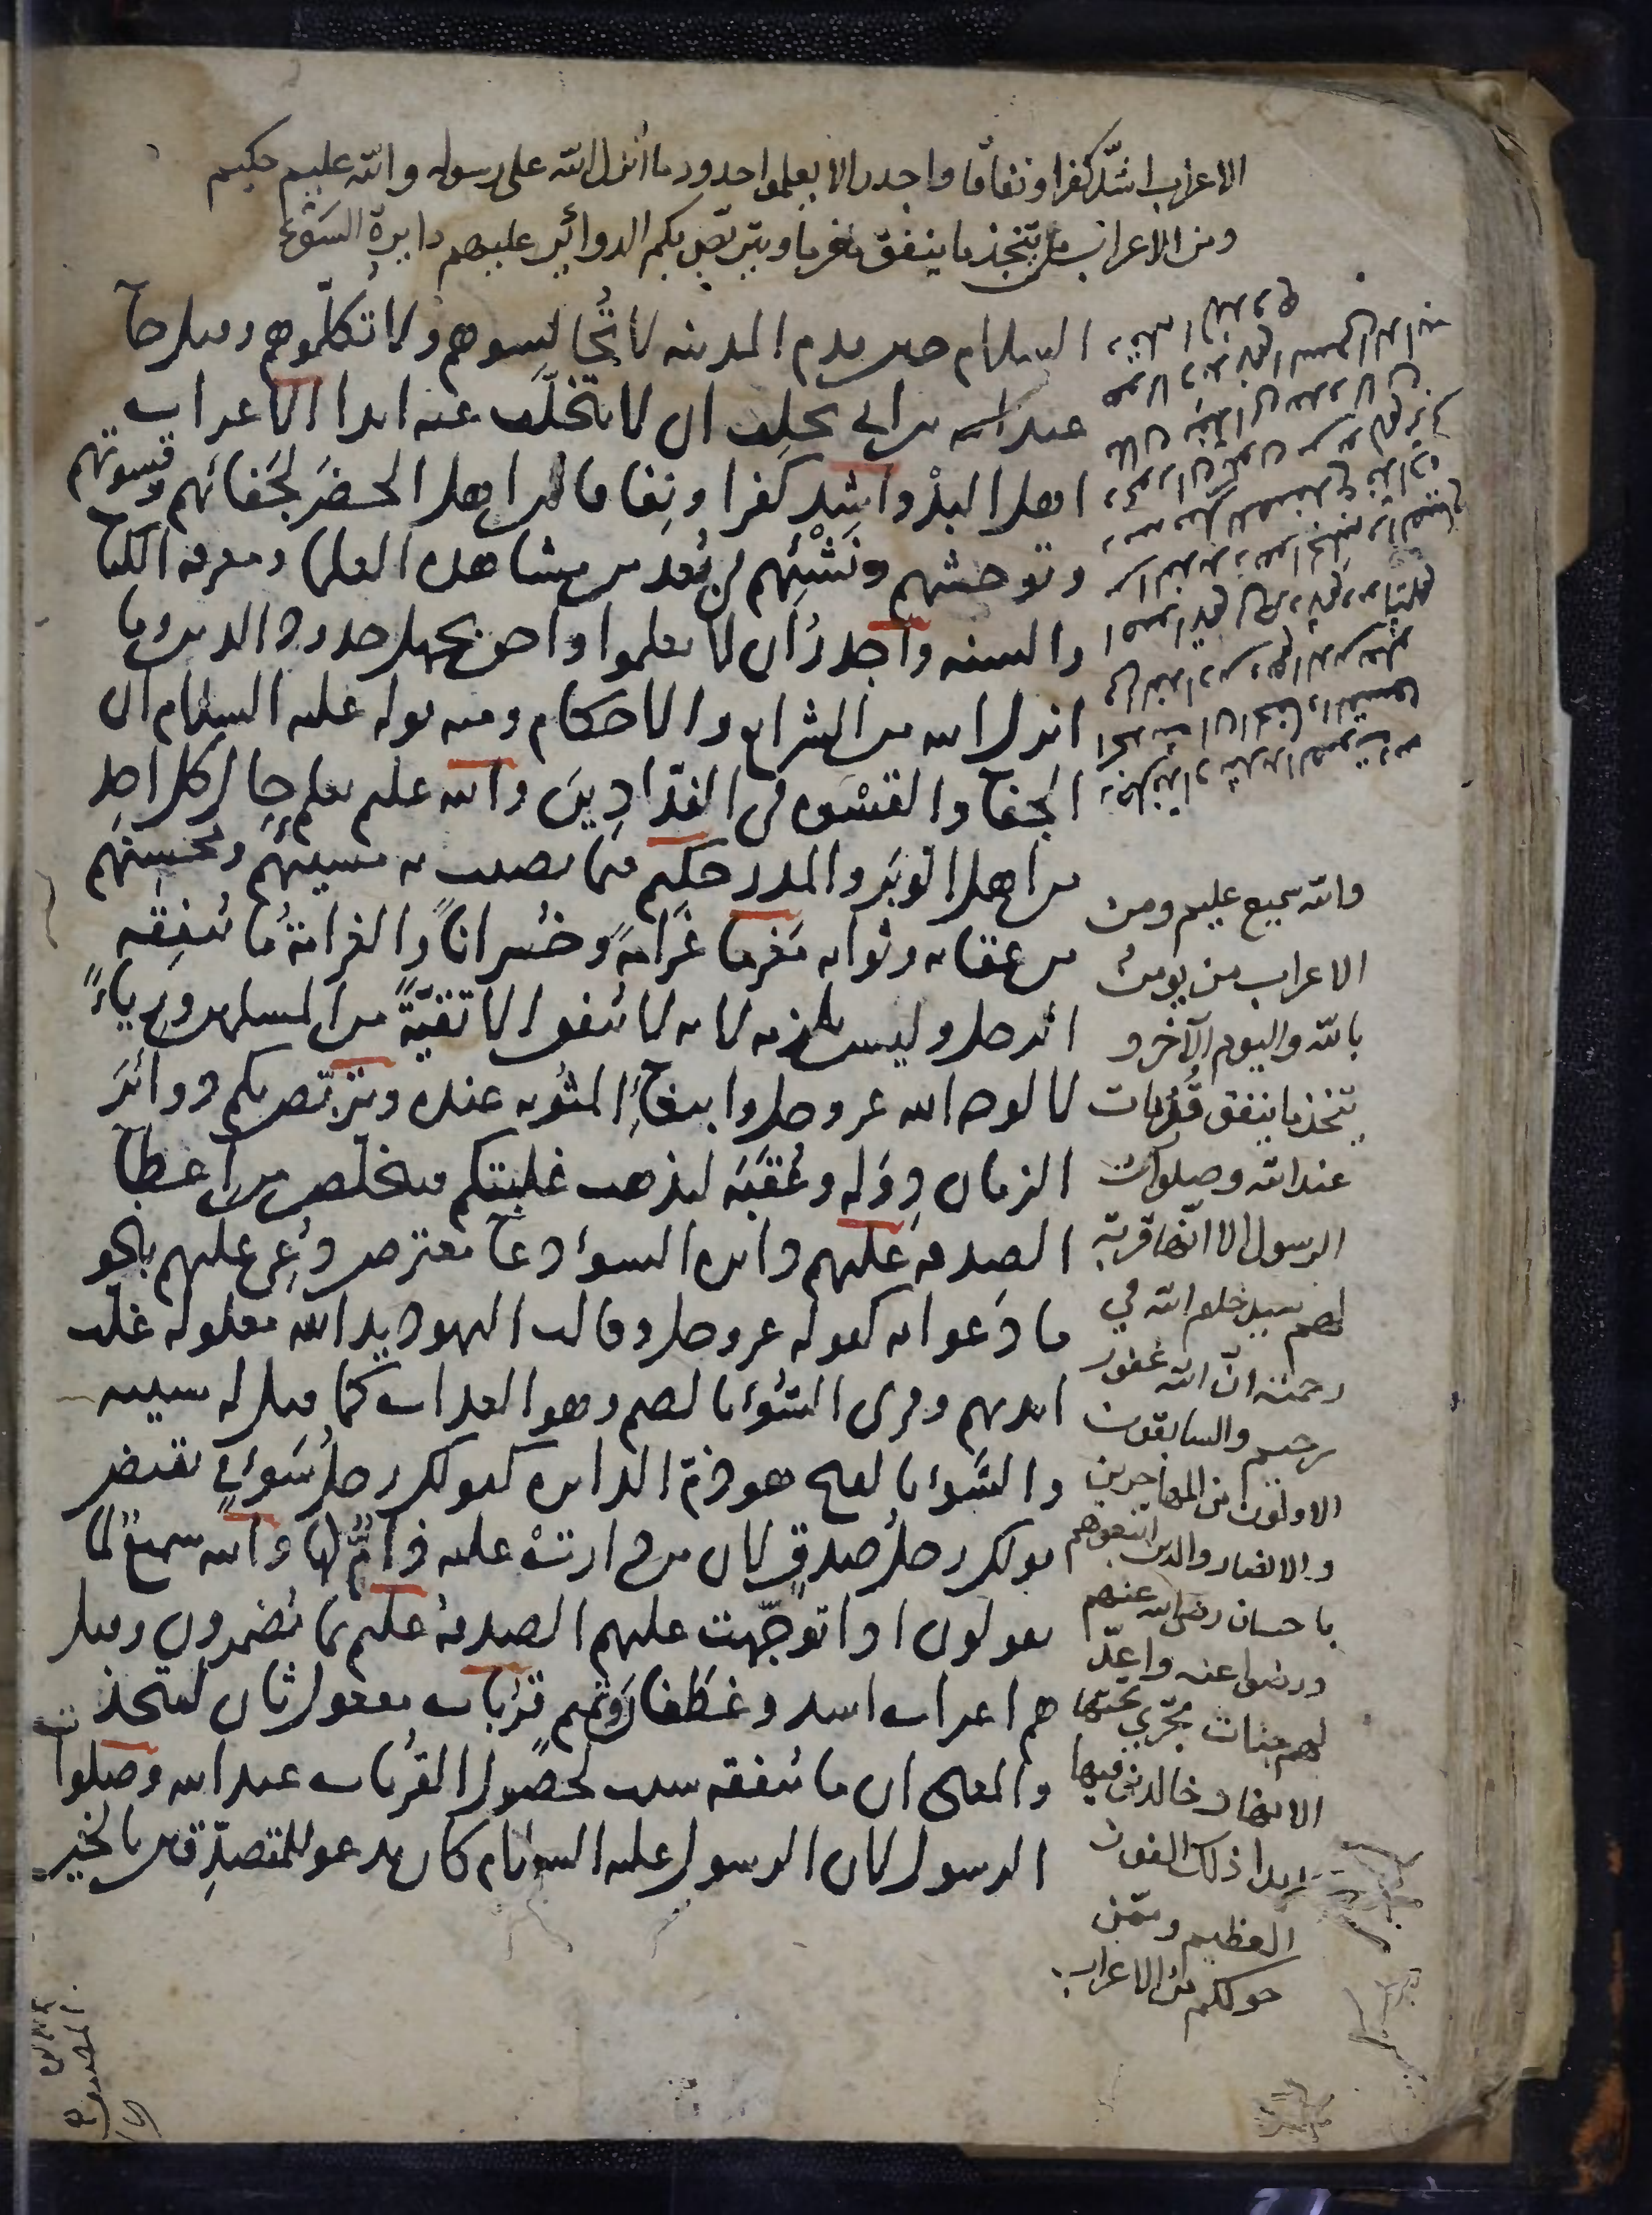 الاعراب اشدّ كفرا ونفاقا واجدر الا يعلموا حدود ما أنزل الله على رسوله والله عليم حكيم
ومن الاعراب من يتّخذ ما ينفق مغرما ويتربّص بكم الدوائر عليهم دايرة السَّوْء
السلام حين قدم المدينه لا تُجالِسوهم ولا تُكلّموهم وقيل جا
عبد الله بن ابي يحلِف ان لا يتخلّف عنه ابدا الاعراب
اهل البدْو اشد كفرا ونِفاقا من اهل الحضَر لجَفائهم وقسوتهم
وتوحشهم ونَشْئِهم في بُعد من مشاهده العلما ومعرفه الكتاب
والسنه واجدرُ ان لا يعلموا واحق بجهل حدود الدين وما
انزل الله من الشرايع والاحكام ومنه قوله عليه السلام ان
الجفا والقسْوه في الفدّادِينَ والله عليم يعلم حال كل احدٍ
من اهل الوبَر والمدر حكيم فيما يصيب به مسيئهم ومحسنهم
من عقابه وثوابه مَغرما غَرامهً وخُسرانًا والغرامةُ ما يُنفِقه
الرجل وليس يلزمه لانه لا يُنفق الا تقيّةً من المسلمين ورِياءً
لا لوجه الله عز وجل وابتغاءِ المثوبه عنده ويتربّص بكم دوائرَ
الزمان دِوَله وعُقَبَه ليذهب غلبتكم فيتخلص من اعطا
الصدقه عليهم دائره السوء دعا معترض دُعِي عليهم بنحو
ما دَعوا به كقوله عز وجل وقالت اليهود يد الله مغلوله غلت
ايديهم وقرئ السُّوْء بالضم وهو العذاب كما قيل له سيئه
والسَّوء بالفتح هو ذمّ الدائره كقولك رجلُ سَوْءٍ في نقيض
قولك رجلُ صدقٍ لان من دارتْ عليه ذامٌّ لها والله سميع لما
يقولون اذا توجّهت عليهم الصدقهُ عليم بما يُضمرون وقيل
هم اعراب اسد وغطفان وتميم قرُبات مفعول ثان ليتخذ
والمعنى ان ما يُنفقه سبب لحصول القرُبات عند الله وصلوات
الرسول لان الرسول عليه السلام كان يدعو للمتصدِّقين بالخير
والله سميع عليم ومن
الاعراب من يومن
بالله واليوم الآخر و
يتخذ ما ينفق قُرُبات
عند الله وصلوات
الرسول الا انّها قربة
لهم سيدخلهم الله في
رحمته انّ الله غفور
رحيم والسابقون
الاولون من المهاجرين
والانصار والذين اتبعوهم
باحسان رضي الله عنهم
ورضوا عنه واعدّ
لهم جنات تجري تحتها
الانهار خالدين فيها
ابدا ذلك الفوز
العظيم وممّن
حولكم من الاعراب